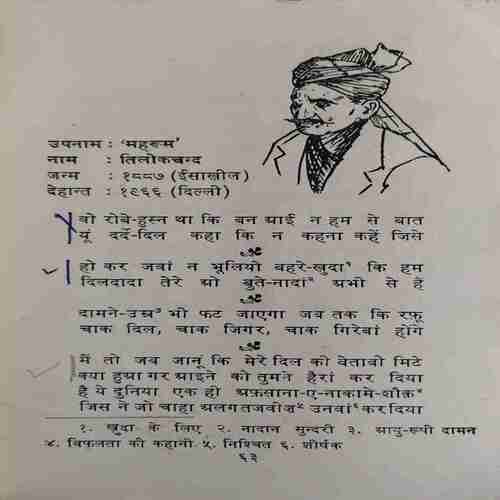 उपनाम : 'महरूम'
नाम : तिलोकचन्द
जन्म : १८८७ (ईसाखील)
देहान्त : १९६६ (दिल्ली)
वो रोबे-हुस्न था कि बन आई न हम से बात
यूं दर्दे-दिल कहा कि न कहना कहें जिसे
हो कर जवां न भूलियो बहरे-खुदा¹ कि हम
दिलदादा तेरे ओ बुते-नादां² अभी से हैं
दामने-उम्र³ भी फट जाएगा जब तक कि रफ़ू
चाक दिल, चाक जिगर, चाक गिरेबां होंगे
मैं तो जब जानूं कि मेरे दिल की बेताबी मिटे
क्या हुआ गर आइने को तुमने हैरां कर दिया
है ये दुनिया एक ही अफ़साना-ए-नाकामे-शौक़⁴
जिस ने जो चाहा अलग तजवीज़⁵ उनवां⁶ कर दिया
१. खुदा के लिए २. नादान सुन्दरी ३. आयु-रूपी दामन
४. विफलता की कहानी ५. निश्चित ६. शीर्षक
६३